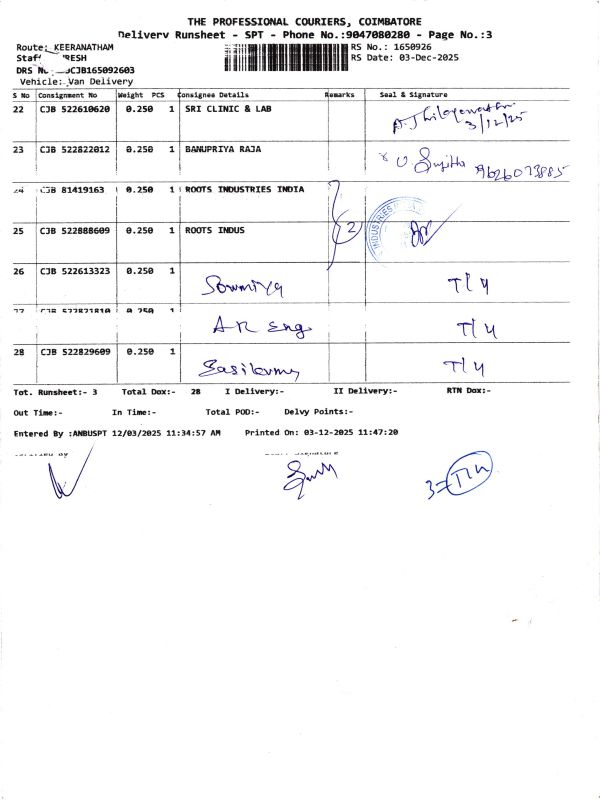 THE PROFESSIONAL COURIERS, COIMBATORE
Delivery Runsheet - SPT - Phone No.:9047080280 - Page No.:3
Route: KEERANATHAM
RS No.: 1650926
RESH
RS Date: 03-Dec-2025
DRS No CJB165092603
Vehicle: Van Delivery
S No Consignment No Weight PCS Consignee Details Remarks Seal & Signature
22 CJB 522610620 0.250 1 SRI CLINIC & LAB
3/12/25
23 CJB 522822012 0.250 1 BANUPRIYA RAJA
24 CJB 81419163 0.250 1 ROOTS INDUSTRIES INDIA
2
INDUSTRIES
25 CJB 522888609 0.250 1 ROOTS INDUS
26 CJB 522613323 0.250 1 Sowmiya T/4
27 CJB 522821810 0.250 1 AR Eng T/4
28 CJB 522829609 0.250 1 T/4
Tot. Runsheet:- 3 Total Dox:- 28 I Delivery:- II Delivery:- RTN Dox:-
Out Time:- In Time:- Total POD:- Delvy Points:-
Entered By :ANBUSPT 12/03/2025 11:34:57 AM Printed On: 03-12-2025 11:47:20
3=T/4